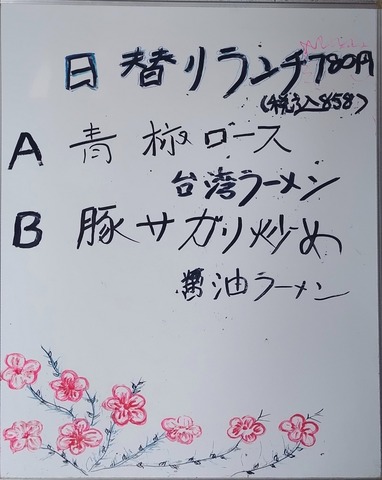 日替りランチ780円
(税込858)
A 青椒ロース
台湾ラーメン
B 豚サガリ炒め
醤油ラーメン